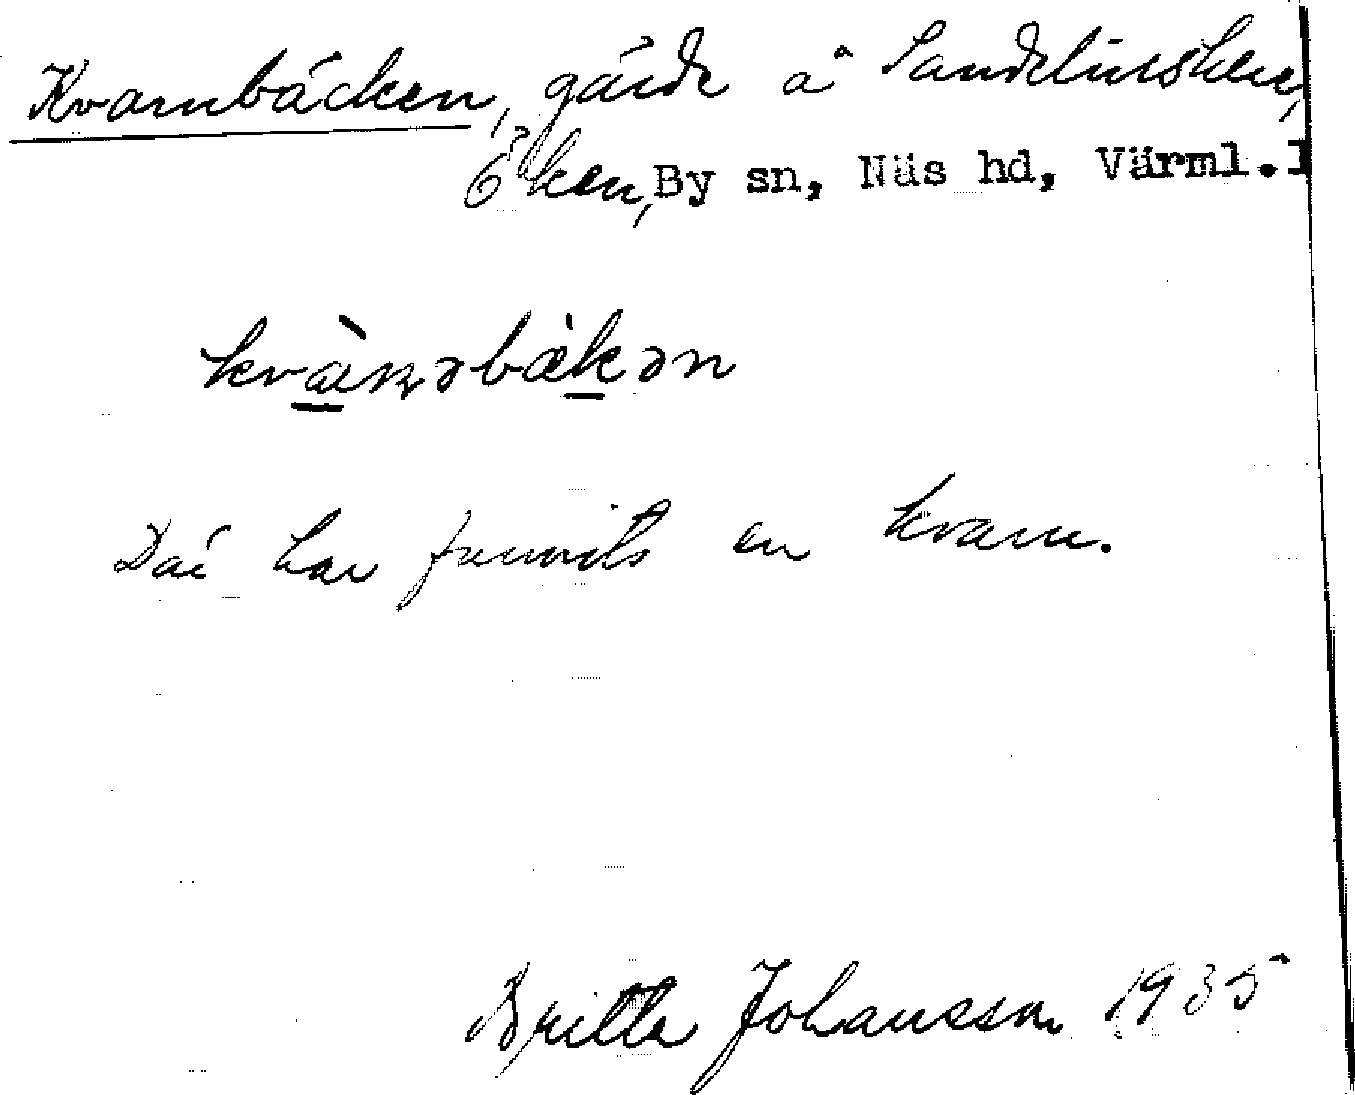 Kvarnbäcken, gärde å Sandelinsken,
Öken, By sn, Näs hd, Värml.l
kvæ̀ɳəbækən
Där har funnits en kvarn.
Britta Johansson 1935